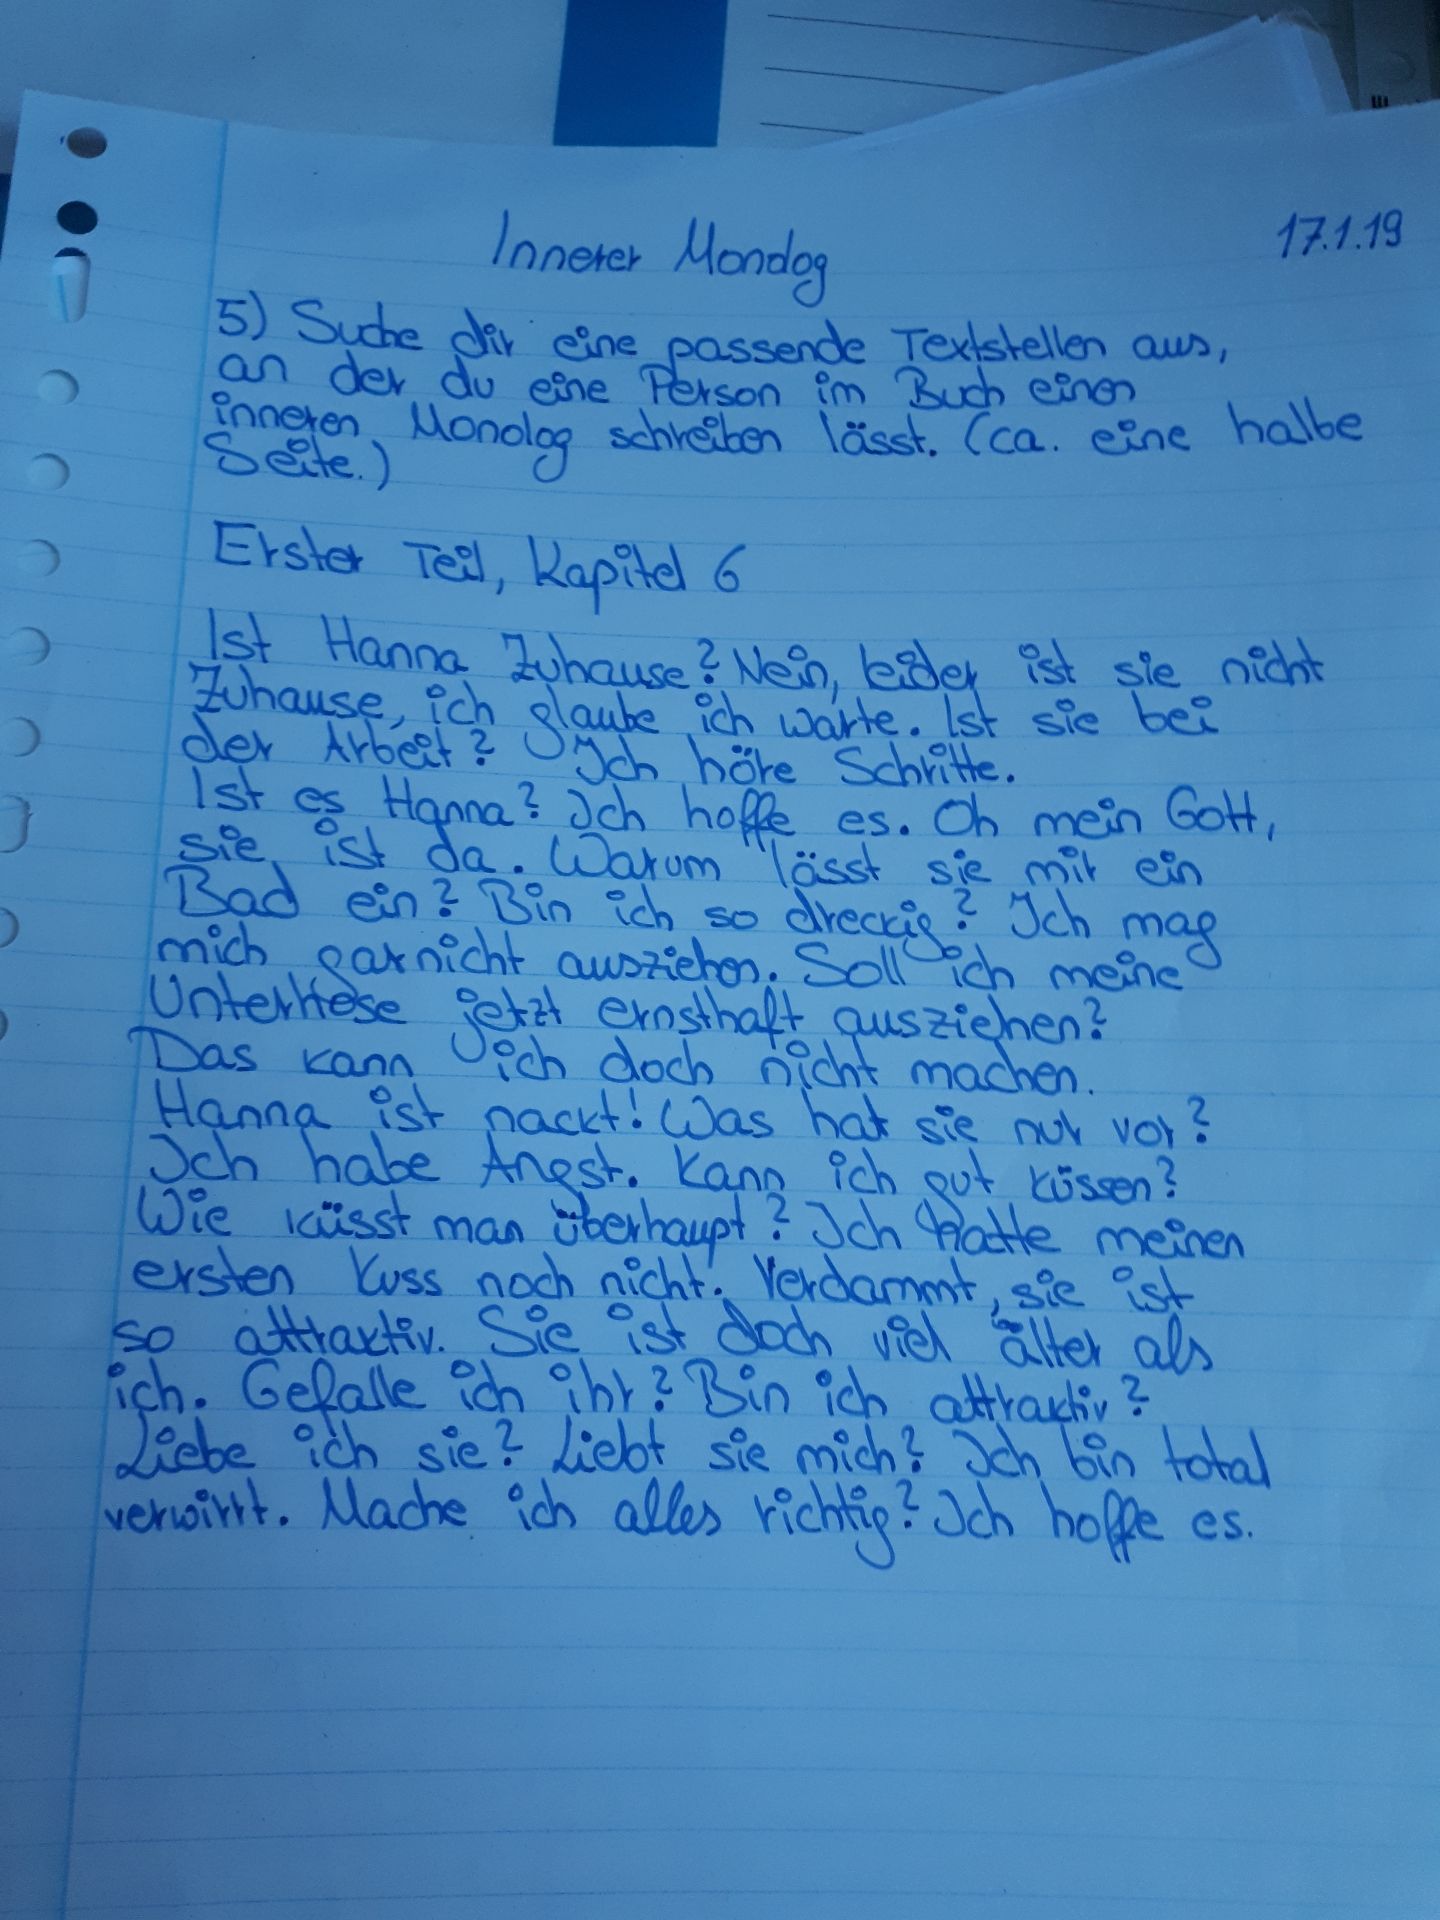 Innerer Monolog
17.1.19
5) Suche dir eine passende Textstellen aus,
an der du eine Person im Buch einen
inneren Monolog schreiben lässt. (ca. eine halbe
Seite.)
Erster Teil, Kapitel 6
Ist Hanna Zuhause? Nein, leider ist sie nicht
Zuhause, ich glaube ich warte. Ist sie bei
der Arbeit? Ich höre Schritte.
Ist es Hanna? Ich hoffe es. Oh mein Gott,
sie ist da. Warum lässt sie mir ein
Bad ein? Bin ich so dreckig? Ich mag
mich garnicht ausziehen. Soll ich meine
Unterhose jetzt ernsthaft ausziehen?
Das kann ich doch nicht machen.
Hanna ist nackt! Was hat sie nur vor?
Ich habe Angst. Kann ich gut küssen?
Wie küsst man überhaupt? Ich hatte meinen
ersten Kuss noch nicht. Verdammt, sie ist
so attraktiv. Sie ist doch viel älter als
ich. Gefalle ich ihr? Bin ich attraktiv?
Liebe ich sie? Liebt sie mich? Ich bin total
verwirrt. Mache ich alles richtig? Ich hoffe es.